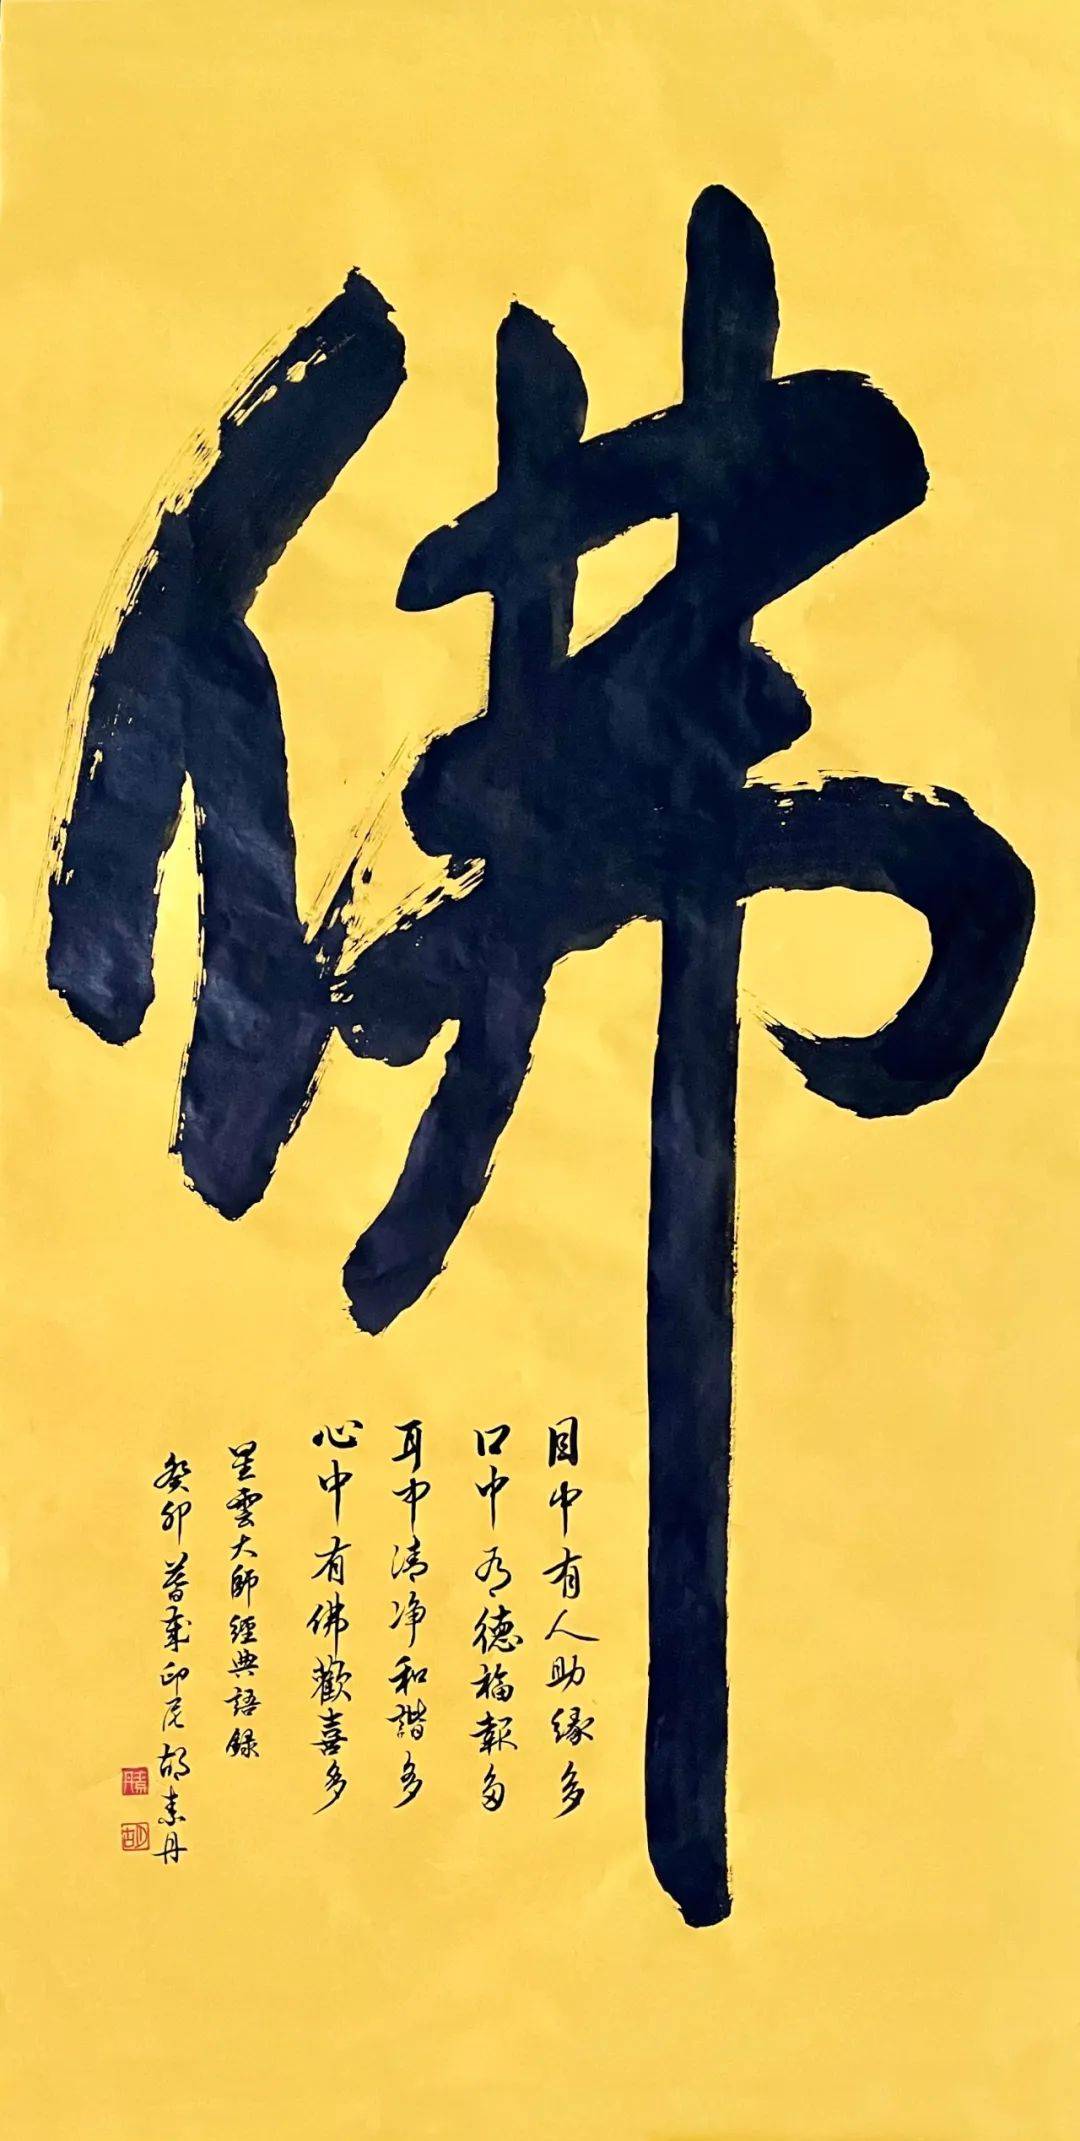 佛
目中有人助缘多
口中有德福報多
耳中清净和諧多
心中有佛歡喜多
星雲大師經典語錄
癸卯暮歲印尼胡素丹